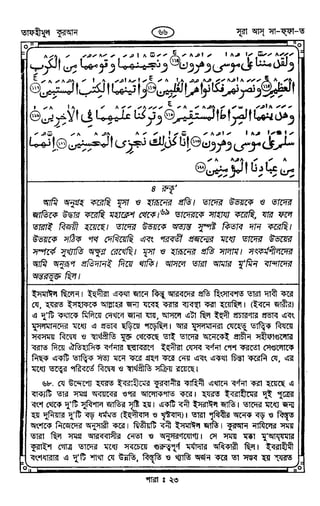 তাফহীমুল কুরআন
৬৬
সূরা আস্ সা-ফ্ফা-ত
وَلَقَدْ مَنَنَّا عَلَىٰ مُوسَىٰ وَهَٰرُونَ ﴿١١٤﴾ وَنَجَّيْنَٰهُمَا وَقَوْمَهُمَا مِنَ الْكَرْبِ
الْعَظِيمِ ﴿١١٥﴾ وَنَصَرْنَٰهُمْ فَكَانُوا هُمُ الْغَٰلِبِينَ ﴿١١٦﴾ وَءَاتَيْنَٰهُمَا الْكِتَٰبَ الْمُسْتَبِينَ ﴿١١٧﴾
وَهَدَيْنَٰهُمَا الصِّرَٰطَ الْمُسْتَقِيمَ ﴿١١٨﴾ وَتَرَكْنَا عَلَيْهِمَا فِي الْءَاخِرِينَ ﴿١١٩﴾
سَلَٰمٌ عَلَىٰ مُوسَىٰ وَهَٰرُونَ ﴿١٢٠﴾ إِنَّا كَذَٰلِكَ نَجْزِي الْمُحْسِنِينَ ﴿١٢١﴾ إِنَّهُمَا
مِنْ عِبَادِنَا الْمُؤْمِنِينَ ﴿١٢٢﴾
৪ রুকূ'
আমি অনুগ্রহ করেছি মূসা ও হারুনের প্রতি। তাদের উভয়কে ও তাদের
জাতিকে উদ্ধার করেছি মহাক্লেশ থেকে।৬৯ তাদেরকে সাহায্য করেছি, যার ফলে
তারাই বিজয়ী হয়েছে। তাদের উভয়কে অত্যন্ত সুস্পষ্ট কিতাব দান করেছি।
উভয়কে সঠিক পথ দেখিয়েছি এবং পরবর্তী প্রজন্মের মধ্যে তাদের উভয়ের
সম্পর্কে সুখ্যাতি অক্ষুণ্ণ রেখেছি। মূসা ও হারুনের প্রতি সালাম। সৎকর্মশীলদের
আমি অনুরূপ প্রতিদানই দিয়ে থাকি। আসলে তারা আমার মু'মিন বান্দাদের
অন্তরভুক্ত ছিল।
ইসমাঈল ছিলেন। ইহুদীরা একথা জানে কিন্তু আরবদের প্রতি হিংসাবশত তারা দাবী করে
যে, হযরত ইসহাককে আল্লাহর জন্য যবেহ করার ব্যবস্থা করা হয়েছিল। (ইবনে জারীর)
এ দু'টি কথাকে মিলিয়ে দেখলে জানা যায়, আসলে এটা ছিল ইহুদী প্রচারণার প্রভাব এবং
মুসলমানদের মধ্যে এ প্রভাব ছড়িয়ে পড়েছিল। আর মুসলমানরা যেহেতু তাত্বিক বিষয়ে
সবসময় বিদ্বেষ ও স্বার্থপ্রীতি মুক্ত থেকেছে তাই তাদের অনেকেই প্রাচীন সহীফাগুলোর
বরাত দিয়ে ঐতিহাসিক বর্ণনার ছদ্মাবরণে ইহুদীরা যেসব বর্ণনা পেশ করতো সেগুলোকে
নিছক একটি তাত্বিক সত্য মনে করে গ্রহণ করে নেয় এবং একথা চিন্তা করেনি যে, এর
মধ্যে তত্ত্বের পরিবর্তে বিদ্বেষ ও স্বার্থপ্রীতি সক্রিয় রয়েছে।
৬৮. যে উদ্দেশ্যে হযরত ইবরাহীমের কুরবানীর কাহিনী এখানে বর্ণনা করা হয়েছে এ
বাক্যটি তার সমগ্র অবয়বের ওপর আলোকপাত করে। হযরত ইবরাহীমের দুই পুত্রের
বংশ থেকে দু'টি সুবিশাল জাতির সৃষ্টি হয়। একটি বনী ইসরাঈল জাতি। তাদের মধ্যে জন্ম
হয় দুনিয়ার দু'টি বড় ধর্মমত (ইহুদীবাদ ও খৃষ্টবাদ)। তারা পৃথিবীর অনেক বড় ও বিস্তৃত
অংশকে নিজেদের অনুসারী করে। দ্বিতীয়টি বনী ইসমাঈল জাতি। কুরআন নাযিলের সময়
তারা ছিল সমগ্র আরববাসীর নেতা ও অনুসরণযোগ্য। সে সময় মক্কা মু'আয্যমার
কুরাইশ গোত্র তাদের মধ্যে সবচেয়ে গুরুত্বপূর্ণ মর্যাদার অধিকারী ছিল। ইবরাহীমী
বংশধারার এ দু'টি শাখা যে উন্নতি, বিস্তৃতি ও খ্যাতি অর্জন করে তা সম্ভব হয় হযরত
পারা : ২৩